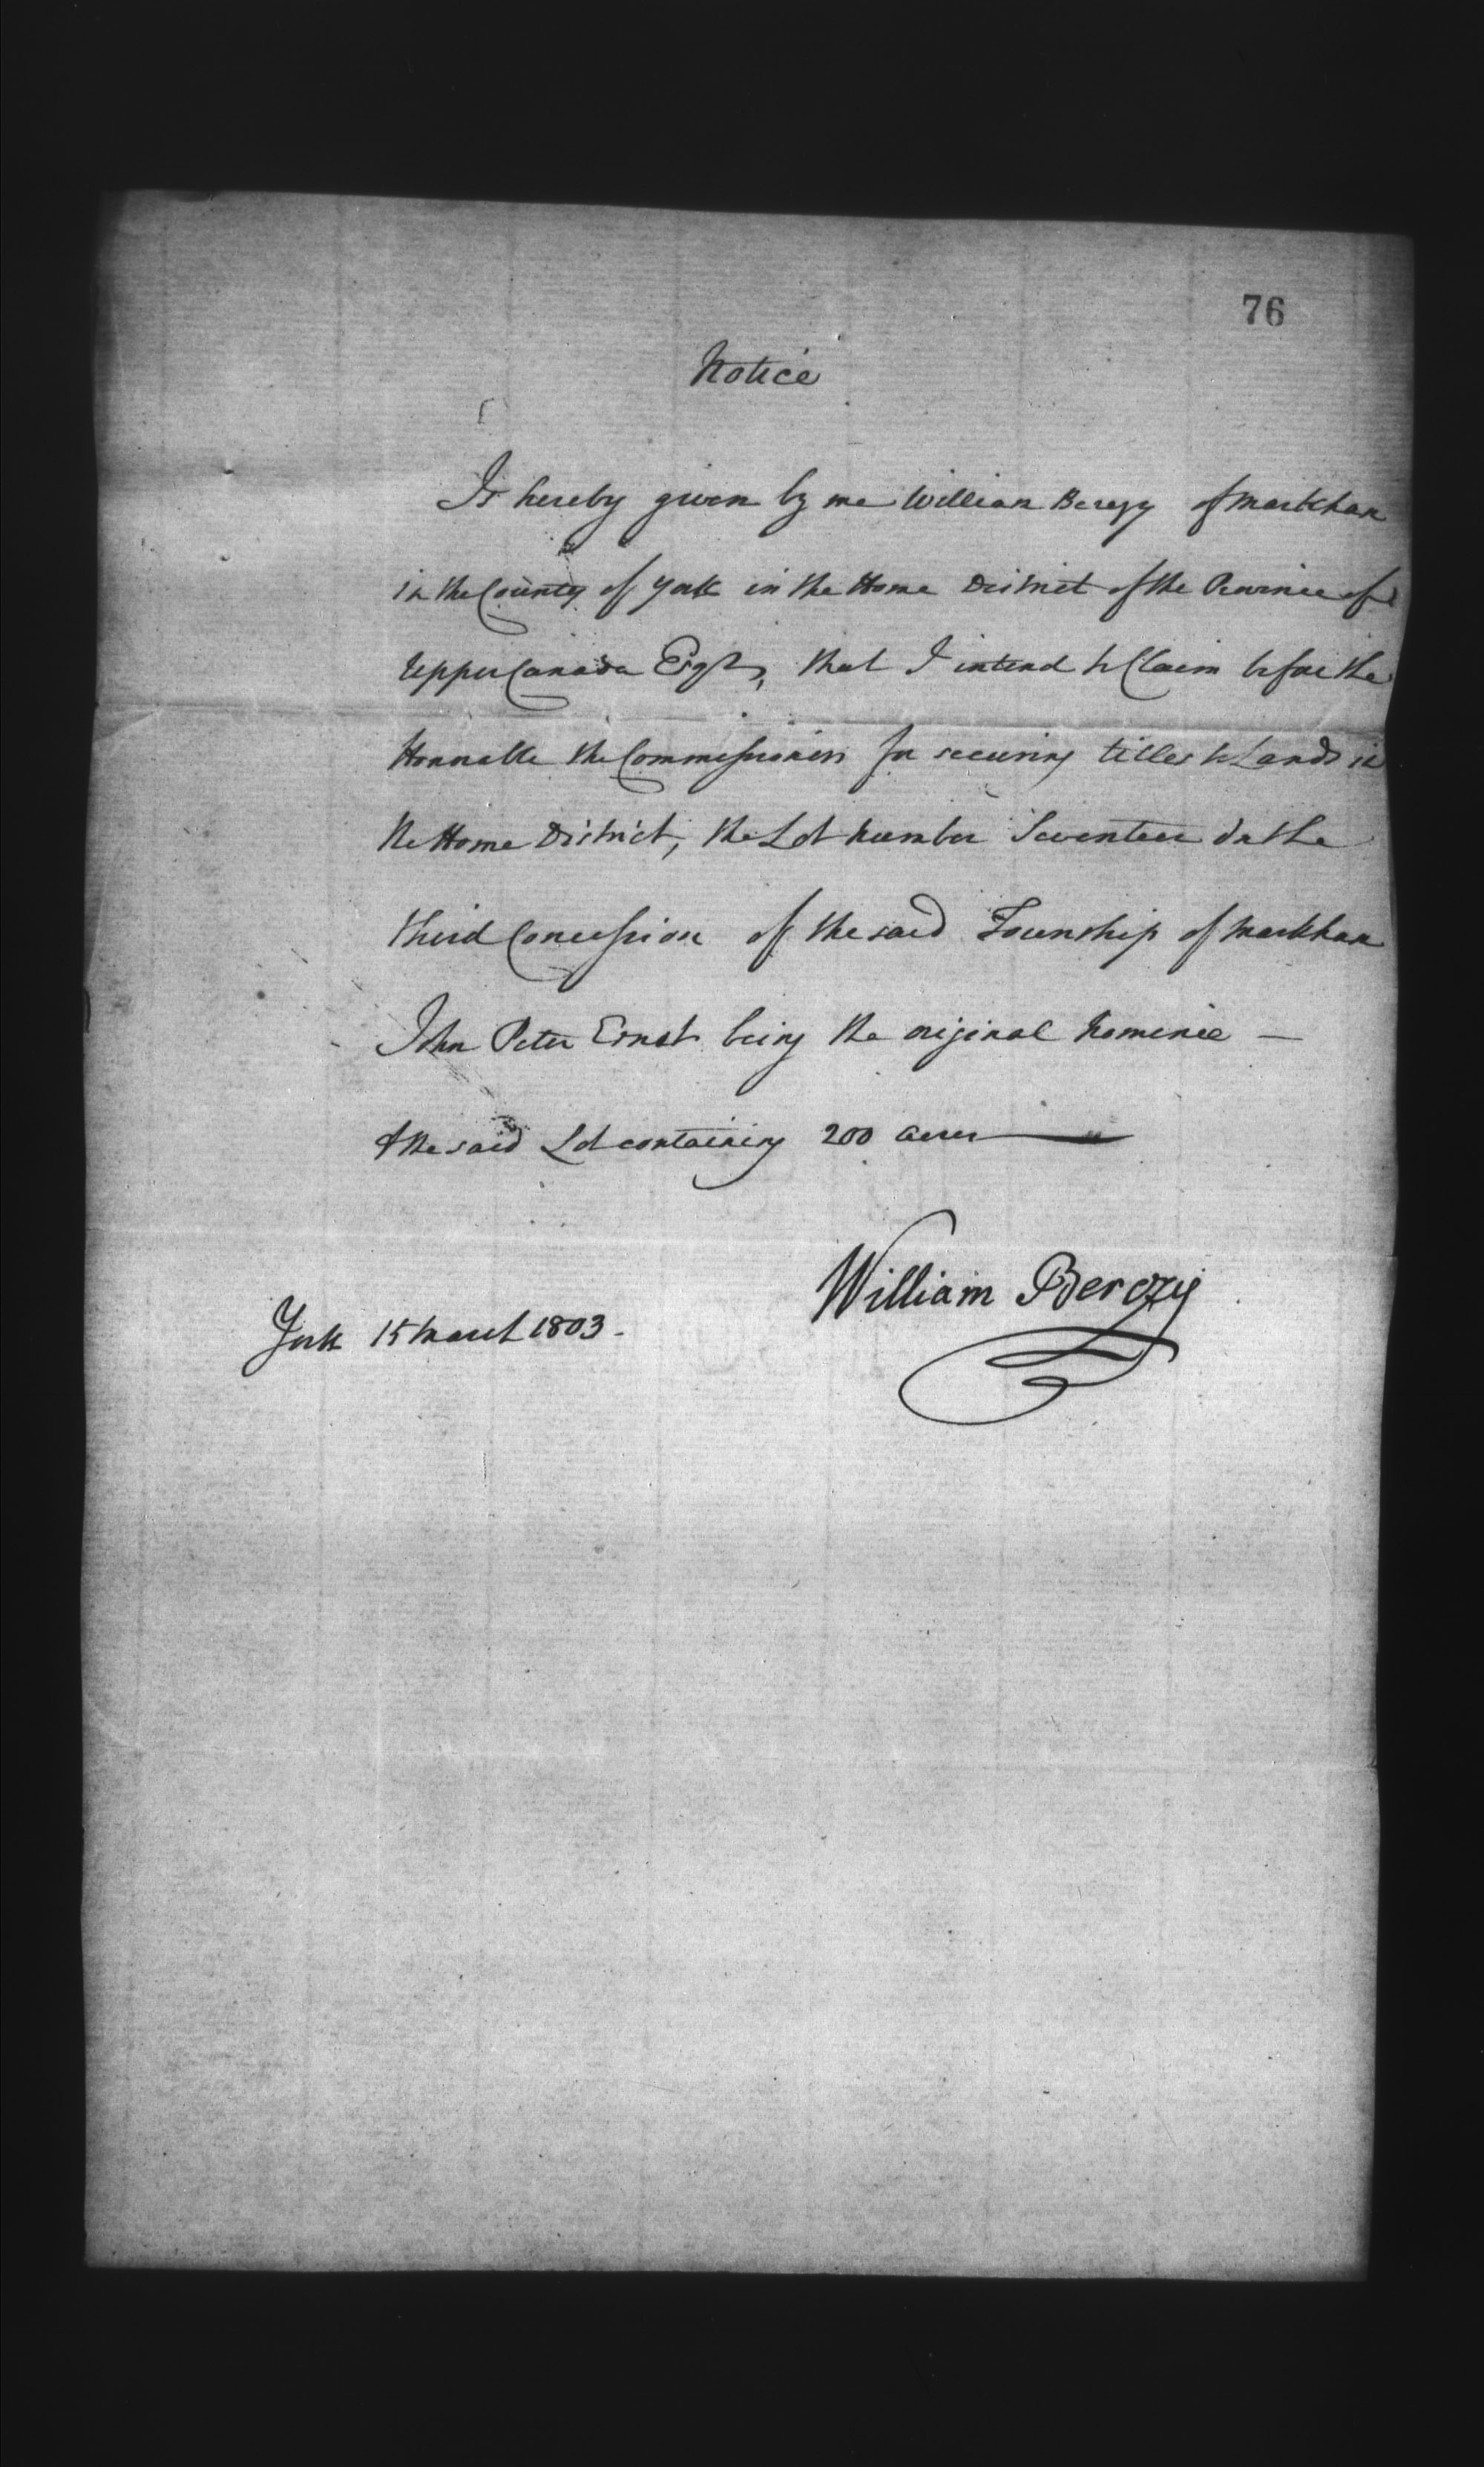 76
Notice
Is hereby given by me William Berczy of Markham
in the County of York in the Home District of the Province of
Upper Canada Esqr, that I intend to Claim before the
Honorable the Commissioners for securing titles to Lands in
the Home District, the Lot number Seventeen In the
third Concession of the said Township of Markham
John Peter Ernst being the original Nominee —
& the said Lot containing 200 acres —
William Berczy
York 15 March 1803.